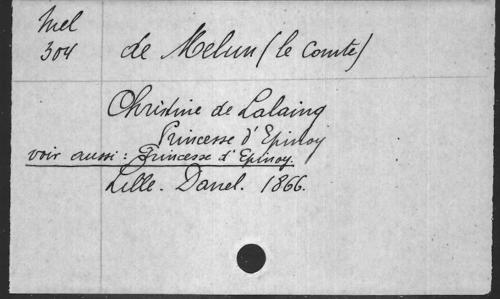 Mel
304
de Melun (le Comte)
Christine de Lalaing
Princesse d'Epinoy
voir aussi : Princesse d'Epinoy.
Lille. Danel. 1866.